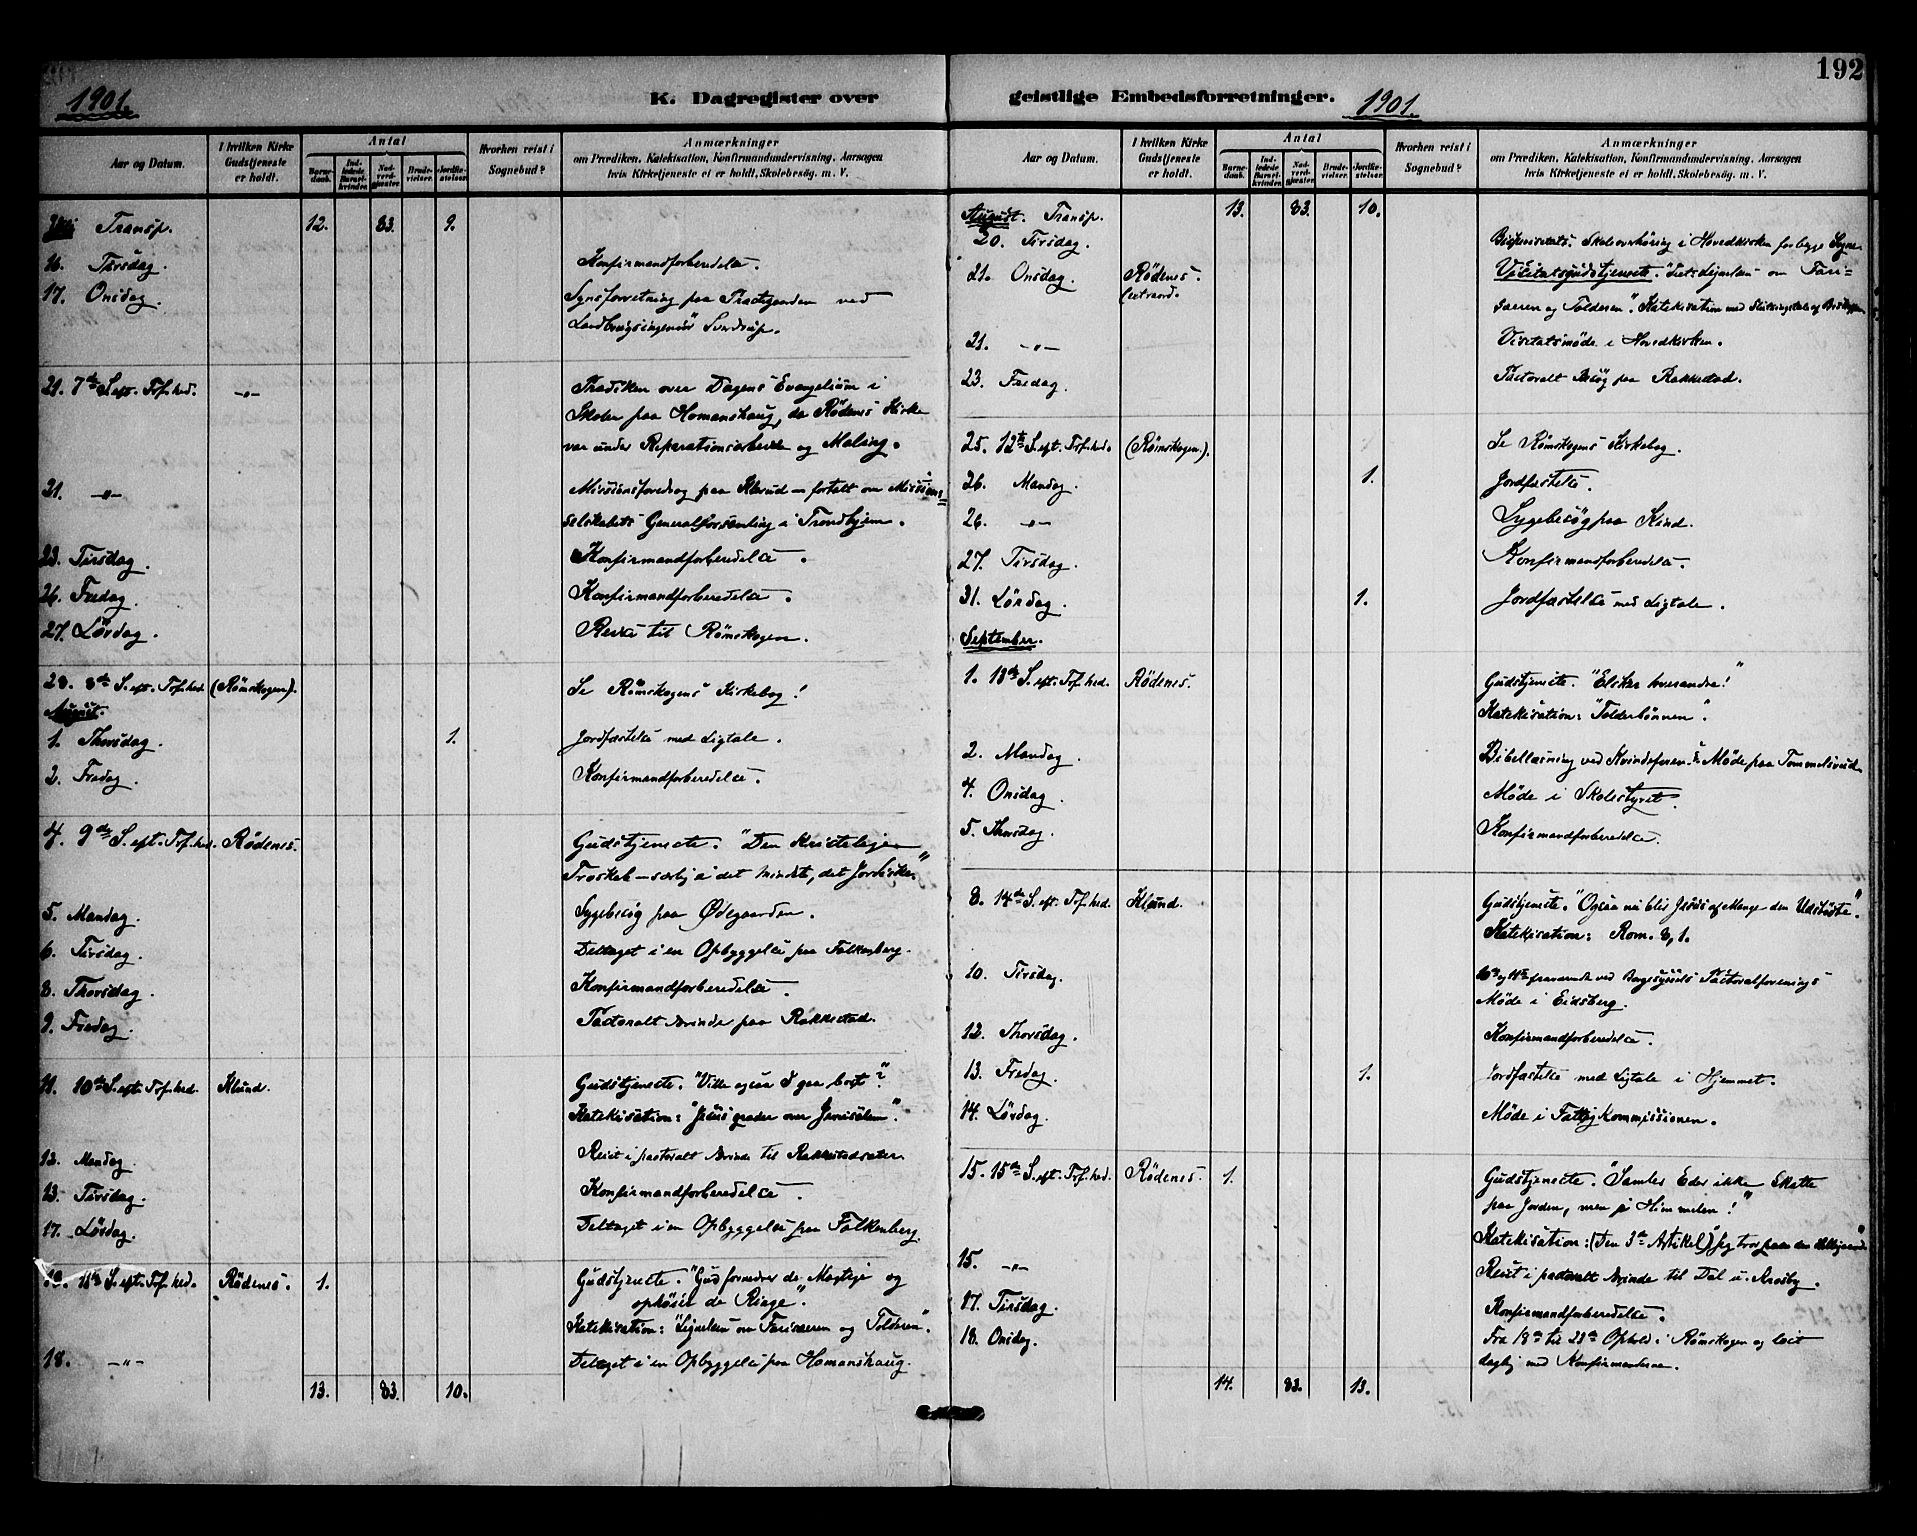 1901.
K. Dagregister over
Aar og Datum. I hvilken Kirke Gudstjeneste er holdt. Antal Barne-daab. Ind-ledede Barsel-kvinder. Nad-verd-gjester. Brude-vielser. Jordfæ-stelser. Hvorhen reist i Sognebud? Anmærkninger
om Prædiken, Katekisation, Konfirmandundervisning, Aarsagen
hvis Kirketjeneste ei er holdt, Skolebesøg, m. V.
Juli Transp. 12. 83. 9.
16. Tirsdag. Konfirmandforberedelse.
17. Onsdag. Synsforretning paa Præstegaarden ved
Landbrugsingeniør Sverdrup.
21. 7de S. eft. Tref.hed. —"— Prædiken over Dagens Evangelium i
Skolen paa Homanshaug, da Rödenes Kirke
var under Reparationsarbeide og Maling.
21. —"— Missionsforedrag paa Klund – fortalt om Missions=
selskabets Generalforsamling i Trondhjem.
23. Tirsdag. Konfirmandforberedelse.
26. Fredag. Konfirmandforberedelse.
27. Lördag. Reise til Römskogen.
28. 8de S. eft. Tref.hed. (Römskogen). Se Römskogens Kirkebog!
August.
1. Thorsdag. 1. Jordfæstelse med Ligtale.
2. Fredag. Konfirmandforberedelse.
4. 9de S. eft. Tref.hed. Rödenes. Gudstjeneste. "Den kristelige
Troskab – særlig i det mindste, det Jordiske."
5. Mandag. Sygebesøg paa Ødegaarden.
6. Tirsdag. Deltaget i en Opbyggelse paa Falkenberg.
8. Thorsdag. Konfirmandforberedelse.
9. Fredag. Pastoralt Ærinde paa Rakkestad.
11. 10de S. eft. Tref.hed. Klund. Gudstjeneste. "Ville ogsaa I gaa bort?"
Katekisation: "Jesus græder over Jerusalem".
12. Mandag Reist i pastoralt Ærinde til Rakkestad
13. Tirsdag. Konfirmandforberedelse.
17. Lördag. Deltaget i en Opbyggelse paa Falkenberg.
18. 11te S. eft. Tref.hed. Rödenes. 1. Gudstjeneste. "Gud fornedrer de Mægtige og
ophöier de Ringe".
Katekisation: "Lignelsen om Farisæeren og Tolderen".
18. —"— Deltaget i en Opbyggelse paa Homanshaug.
13. 83. 10.
192
geistlige Embedsforretninger. 1901.
Aar og Datum. I hvilken Kirke Gudstjeneste er holdt. Antal Barne-daab. Ind-ledede Barsel-kvinder. Nad-verd-gjester. Brude-vielser. Jordfæ-stelser. Hvorhen reist i Sognebud? Anmærkninger
om Prædiken, Katekisation, Konfirmandundervisning, Aarsagen
hvis Kirketjeneste ei er holdt, Skolebesøg, m. V.
August. Transp. 13. 83. 10.
20. Tirsdag. Bispevisitats. Skoleoverhöring i Hovedkirken for begge Sogne.
21. Onsdag. Rödenes. (extraord. Visitatsgudstjeneste. "Lignelsen om Fari=
sæeren og Tolderen". Katekisation med Slutningstale af Biskoppen
21. —"— Visitatsmöde i Hovedkirken.
23. Fredag. Pastoralt Besög paa Rakkestad.
25. 12te S. eft. Tref.hed. (Römskogen.). Se Römskogens Kirkebog.
26. Mandag. 1. Jordfæstelse.
26. —"— Sygebesög paa Kind.
27. Tirsdag. Konfirmandforberedelse.
31. Lördag. 1. Jordfæstelse med Ligtale.
September.
1. 13de S. eft. Tref.hed. Rödenes. Gudstjeneste. "Elsker hverandre!"
Katekisation: "Tolderbönnen".
2. Mandag. Bibellæsning ved Kvindeforen.s Möde paa Tommelsrud
4. Onsdag. Möde i Skolestyret.
5. Thorsdag. Konfirmandforberedelse.
8. 14de S. eft. Tref.hed. Klund. Gudstjeneste. "Ogsaa nu blir Jesus af Mange den Udstödte".
Katekisation: Rom. 8, 1.
10. Tirsdag. 10de og 11te fraværende ved Borgesyssels Pastoralforenings
Möde i Eidsberg.
12. Thorsdag. Konfirmandforberedelse.
13. Fredag. 1. Jordfæstelse med Ligtale i Hjemmet.
14. Lördag. Möde i Fattigkommissionen.
15. 15de S. eft. Tref.hed. Rödenes. 1. Gudstjeneste. "Samler Eder ikke Skatte
paa Jorden, men i Himmelen!"
Katekisation: (Den 3die Artikel) "Jeg tror paa den Helligaand."
15. —"— Reist i pastoralt Ærinde til Dal
17. Tirsdag. Konfirmandforberedelse.
18. Onsdag. Fra 18de til 28de Ophold i Römskogen og læst
daglig med Konfirmanterne.
14. 83. 13.